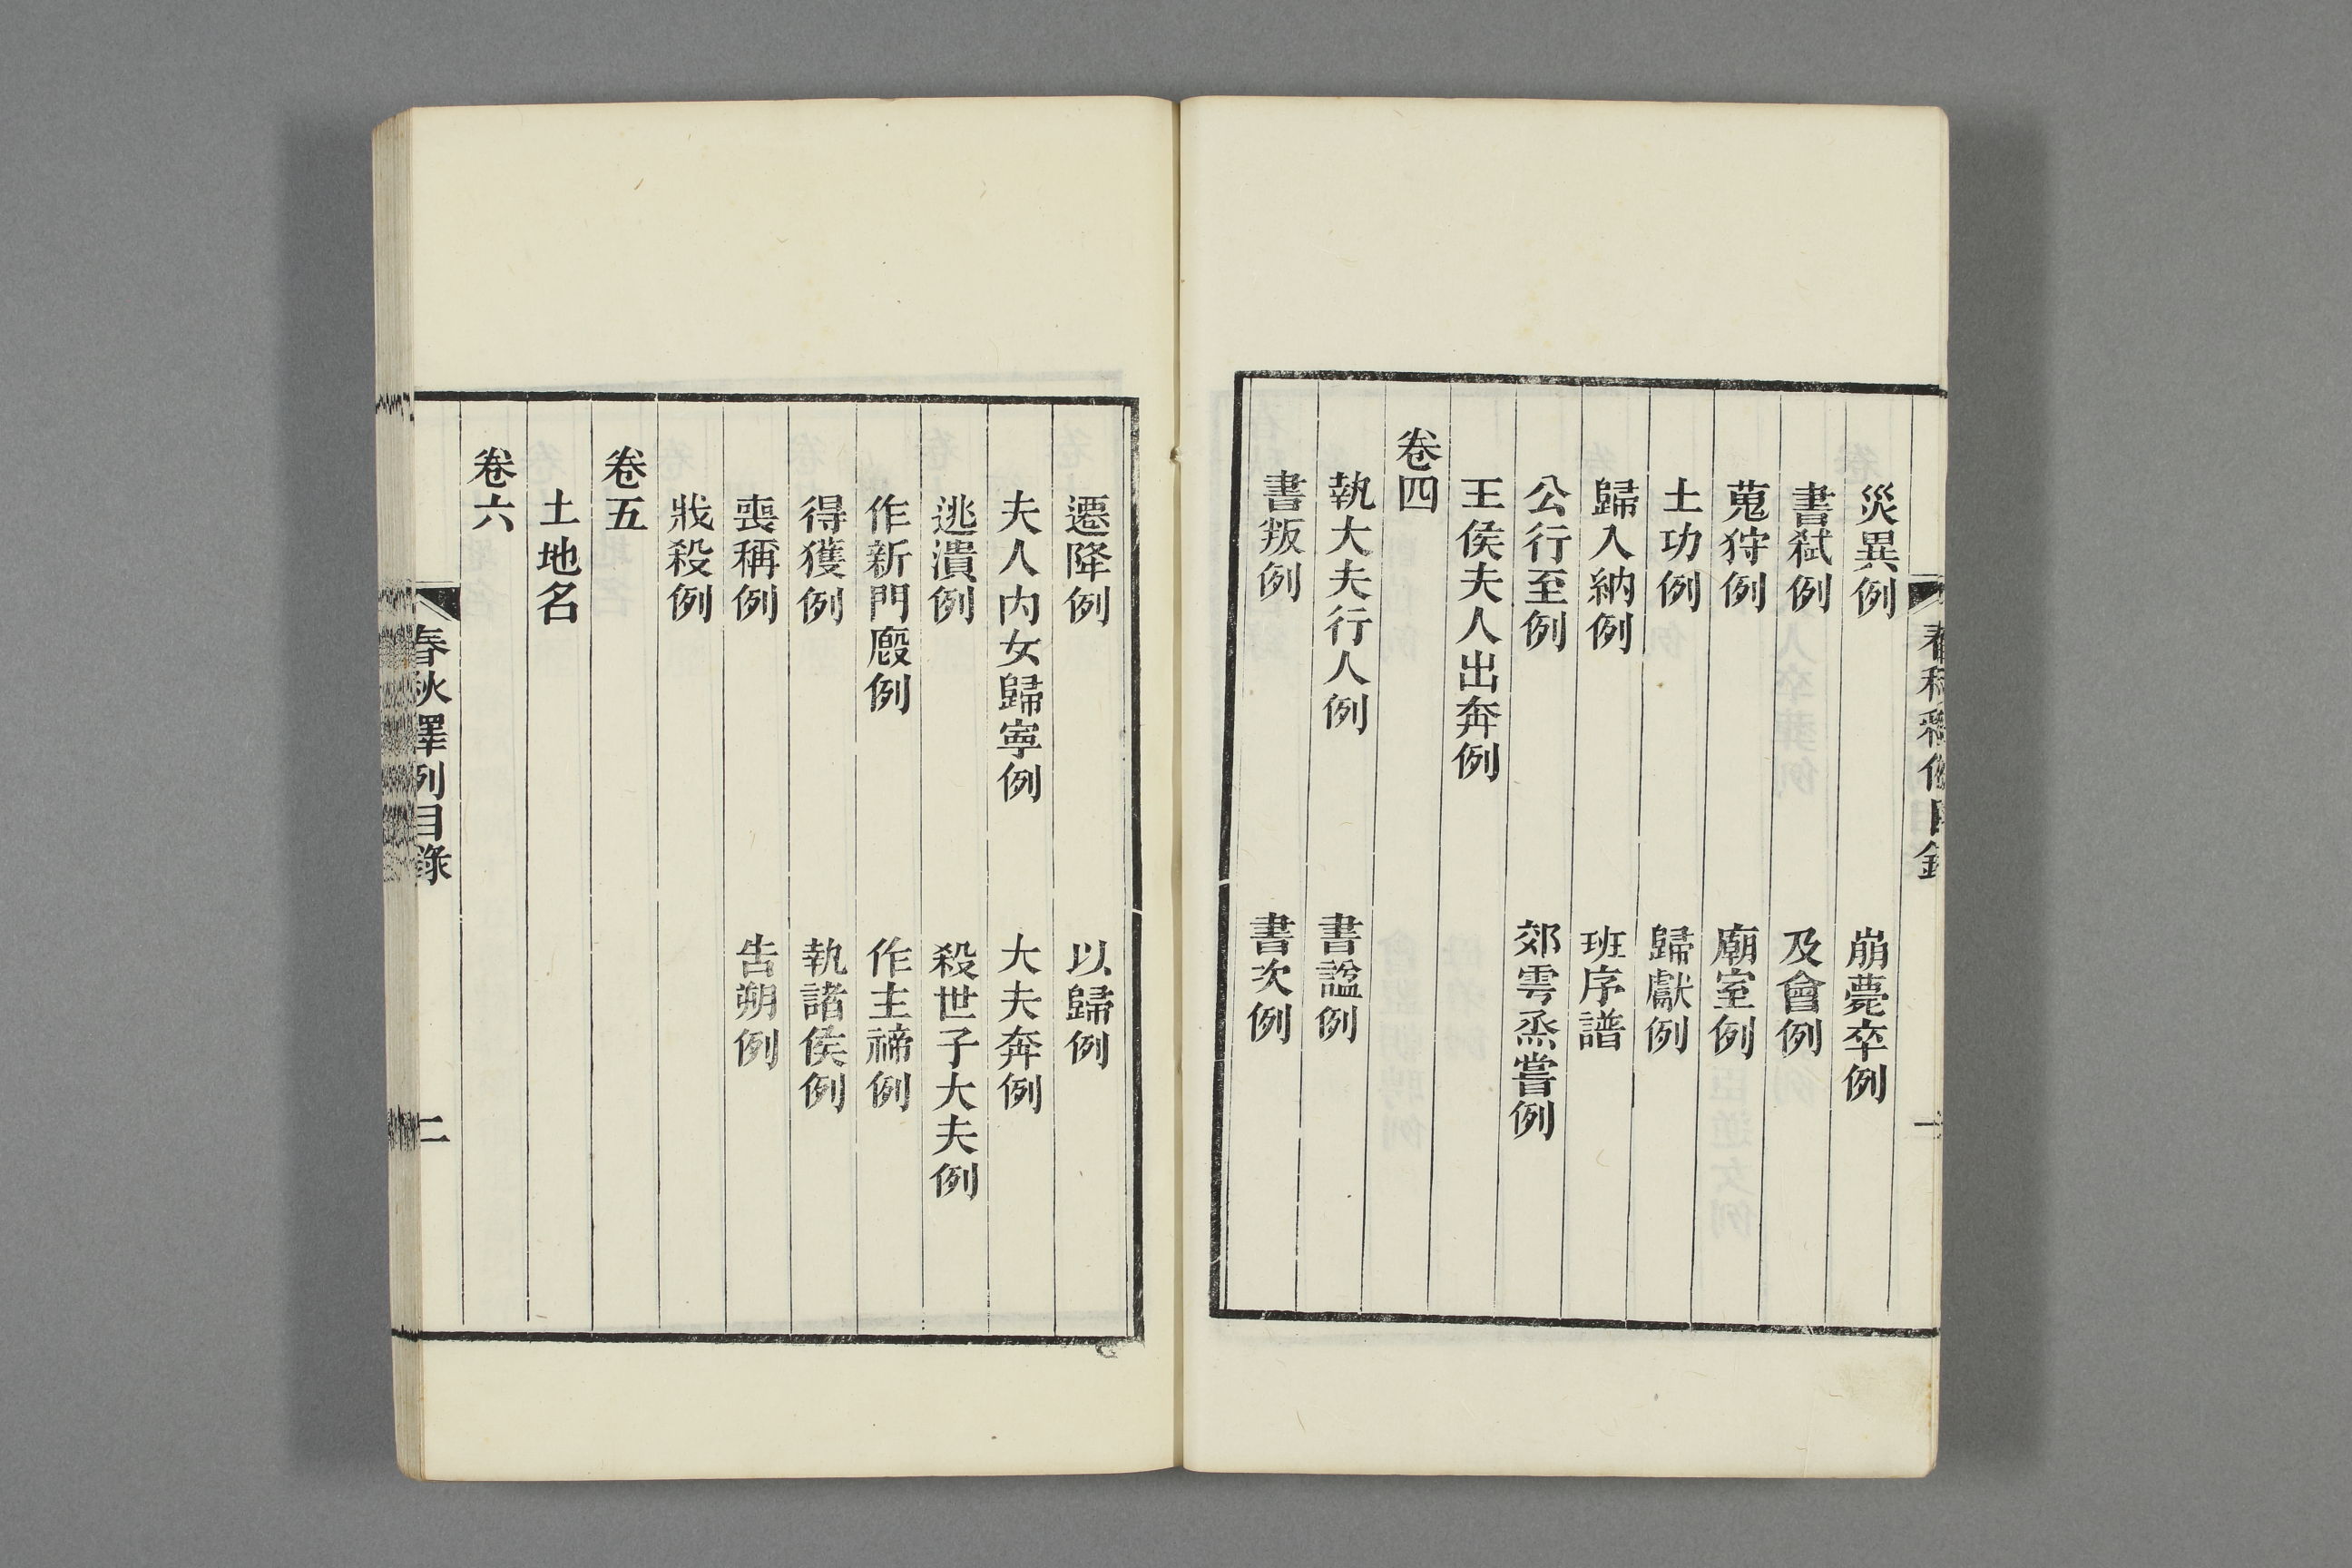 災異例　崩薨卒例
書弑例　及會例
蒐狩例　廟室例
土功例　歸獻例
歸入納例　班序譜
公行至例　郊雩烝嘗例
王侯夫人出奔例
卷四
執大夫行人例　書諡例
書叛例　書次例
遷降例　以歸例
夫人內女歸寧例　大夫奔例
逃潰例　殺世子大夫例
作新門廏例　作主禘例
得獲例　執諸侯例
喪稱例　告朔例
戕殺例
卷五
土地名
卷六
春秋釋例目錄
二